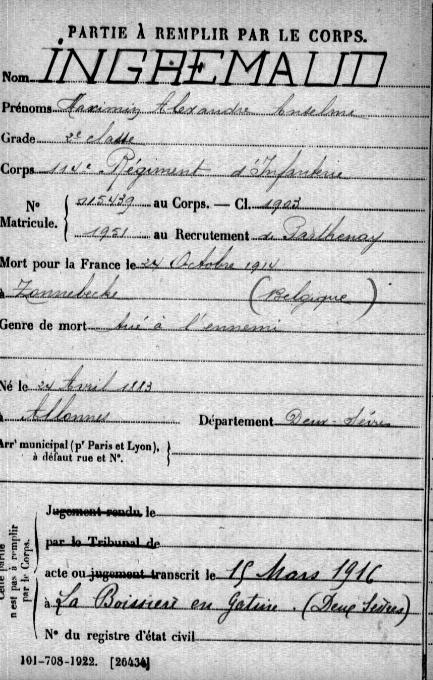 PARTIE À REMPLIR PAR LE CORPS.
Nom INGREMAUD
Prénoms Maximin Alexandre Anselme
Grade 2e classe
Corps 114e Régiment d'Infanterie
N° Matricule. { 015439 au Corps. — Cl. 1903
1951 au Recrutement de Parthenay
Mort pour la France le 24 Octobre 1914
à Zonnebecke (Belgique)
Genre de mort tué à l'ennemi
Né le 24 Avril 1883
à Allonnes Département Deux-Sèvres
Arrt municipal (pr Paris et Lyon),
à défaut rue et N°.
Cette partie n'est pas à remplir par le Corps.
Jugement rendu le
par le Tribunal de
acte ou jugement transcrit le 15 Mars 1916
à La Boissière en Gatine. (Deux Sèvres)
N° du registre d'état civil
101-708-1922. [26434]